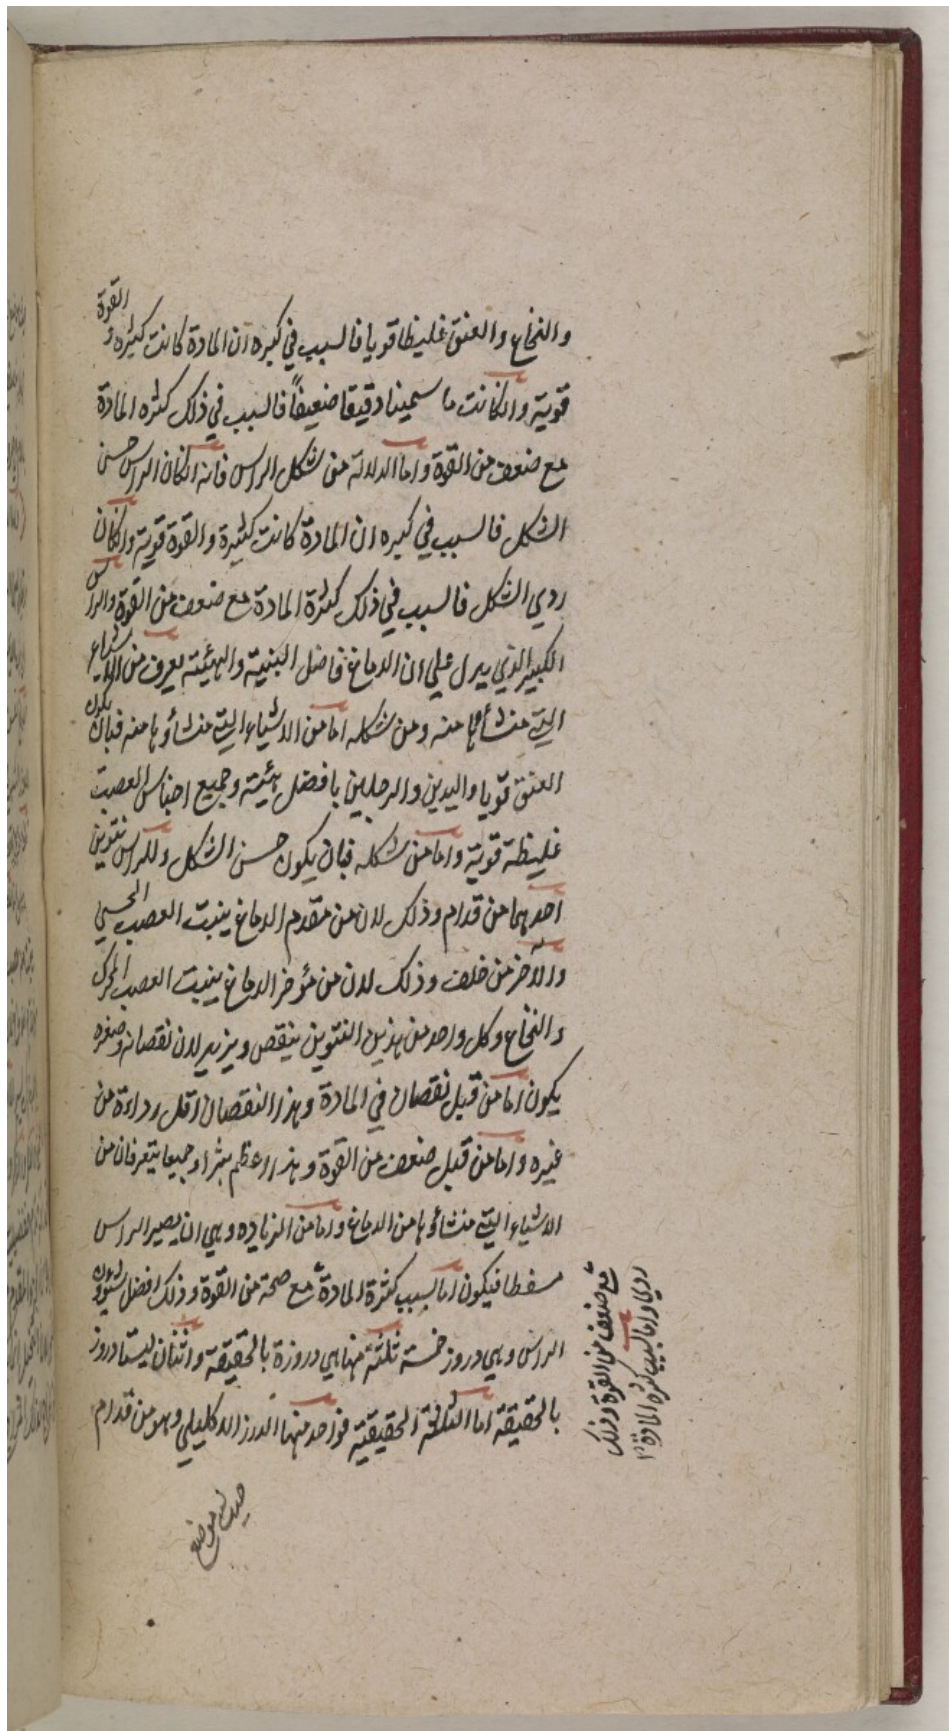 والنخاع والعنق غليظا قويا فالسبب في كبره ان المادة كانت كثيره و القوة
قوية وانكانت ما سمينا دقيقا ضعيفاً فالسبب في ذلك كثره المادة
مع ضعف من القوة واما الدلالة من شكل الراس فانه انكان الراس حسن
الشكل فالسبب في كبره ان المادة كانت كثيرة والقوة قوية وانكان
ردي الشكل فالسبب في ذلك كثرة المادة مع ضعف من القوة والراس
الكبير الذي يدل علي ان الدماغ فاضل البنية والهيئة يعرف من الاشياء
التي منشأوها منه ومن شكله اما من الاشياء التي منشأوها منه فبان يكون
العنق قويا واليدين والرجلين بافضل هيئة وجميع اجناس العصب
غليظة قوية واما من شكله فبان يكون حسن الشكل وللراس نتوين
احدهما من قدام وذلك لان من مقدم الدماغ ينبت العصب الحسي
والآخر من خلف وذلك لان من مؤخر الدماغ ينبت العصب المحرك
والنخاع وكل واحد من هذين النتوين ينقص ويزيد لان نقصانه وصغره
يكون اما من قبل نقصان في المادة وهذا النقصان اقل رداءة من
غيره واما من قبل ضعف من القوة وهذا اعظم شرا وجميعا يتعرفان من
الاشياء التي منشأوها من الدماغ واما من الزياده وهي ان يصير الراس
مسفطا فيكون اما بسبب كثرة المادة مع صحة من القوة وذلك افضل شؤون
الراس وهي دروز خمسة ثلثة منها هي دروزة بالحقيقة واثنان ليستا دروز
بالحقيقة اما الثلثة الحقيقية فواحد منها الدرز الاكليلي وهو من قدام
مع ضعف من القوة وذلك
ردي واما بسبب كثرة المادة